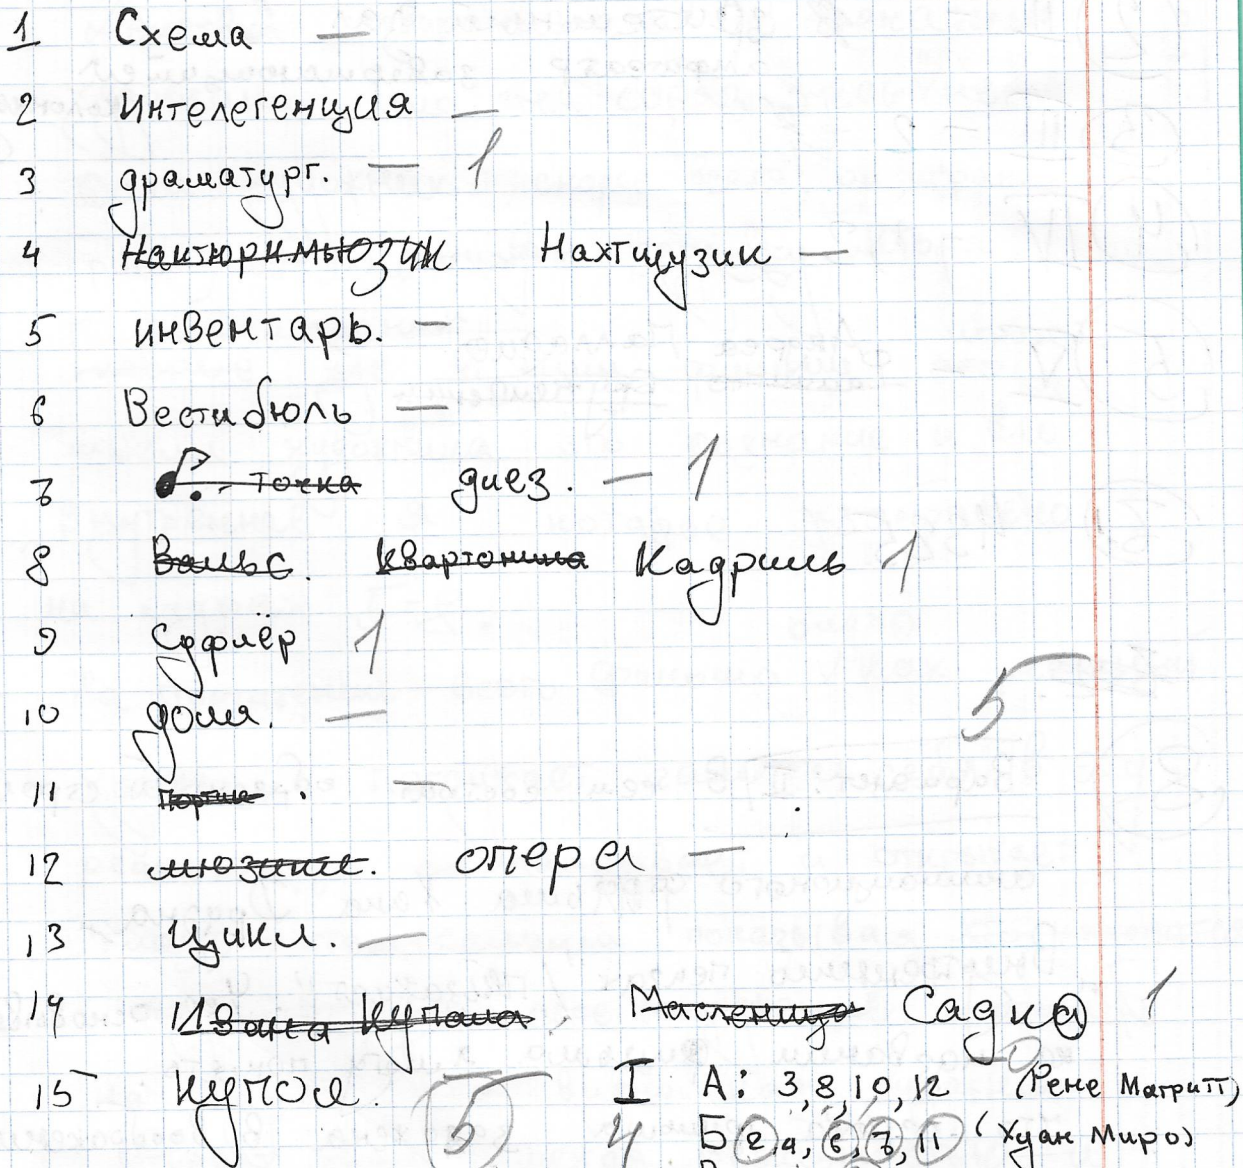 1 Схема —
2 Интелегенция —
3 драматург. — 1
4 Нахтмузик —
5 инвентарь. —
6 Вестибюль —
7 точка диез. — 1
8 Вальс. Кадриль 1
9 Суфлёр 1
10 доля. —
5
11 Портик . —
12 мюзикл. опера —
13 Цикл. —
14 Ивана Купала Масленица Садко 1
15 Купол. — 5 I А: 3,8,10,12 (Рене Магритт)
4 Б 2,4,6,7,11 (Хуан Миро)